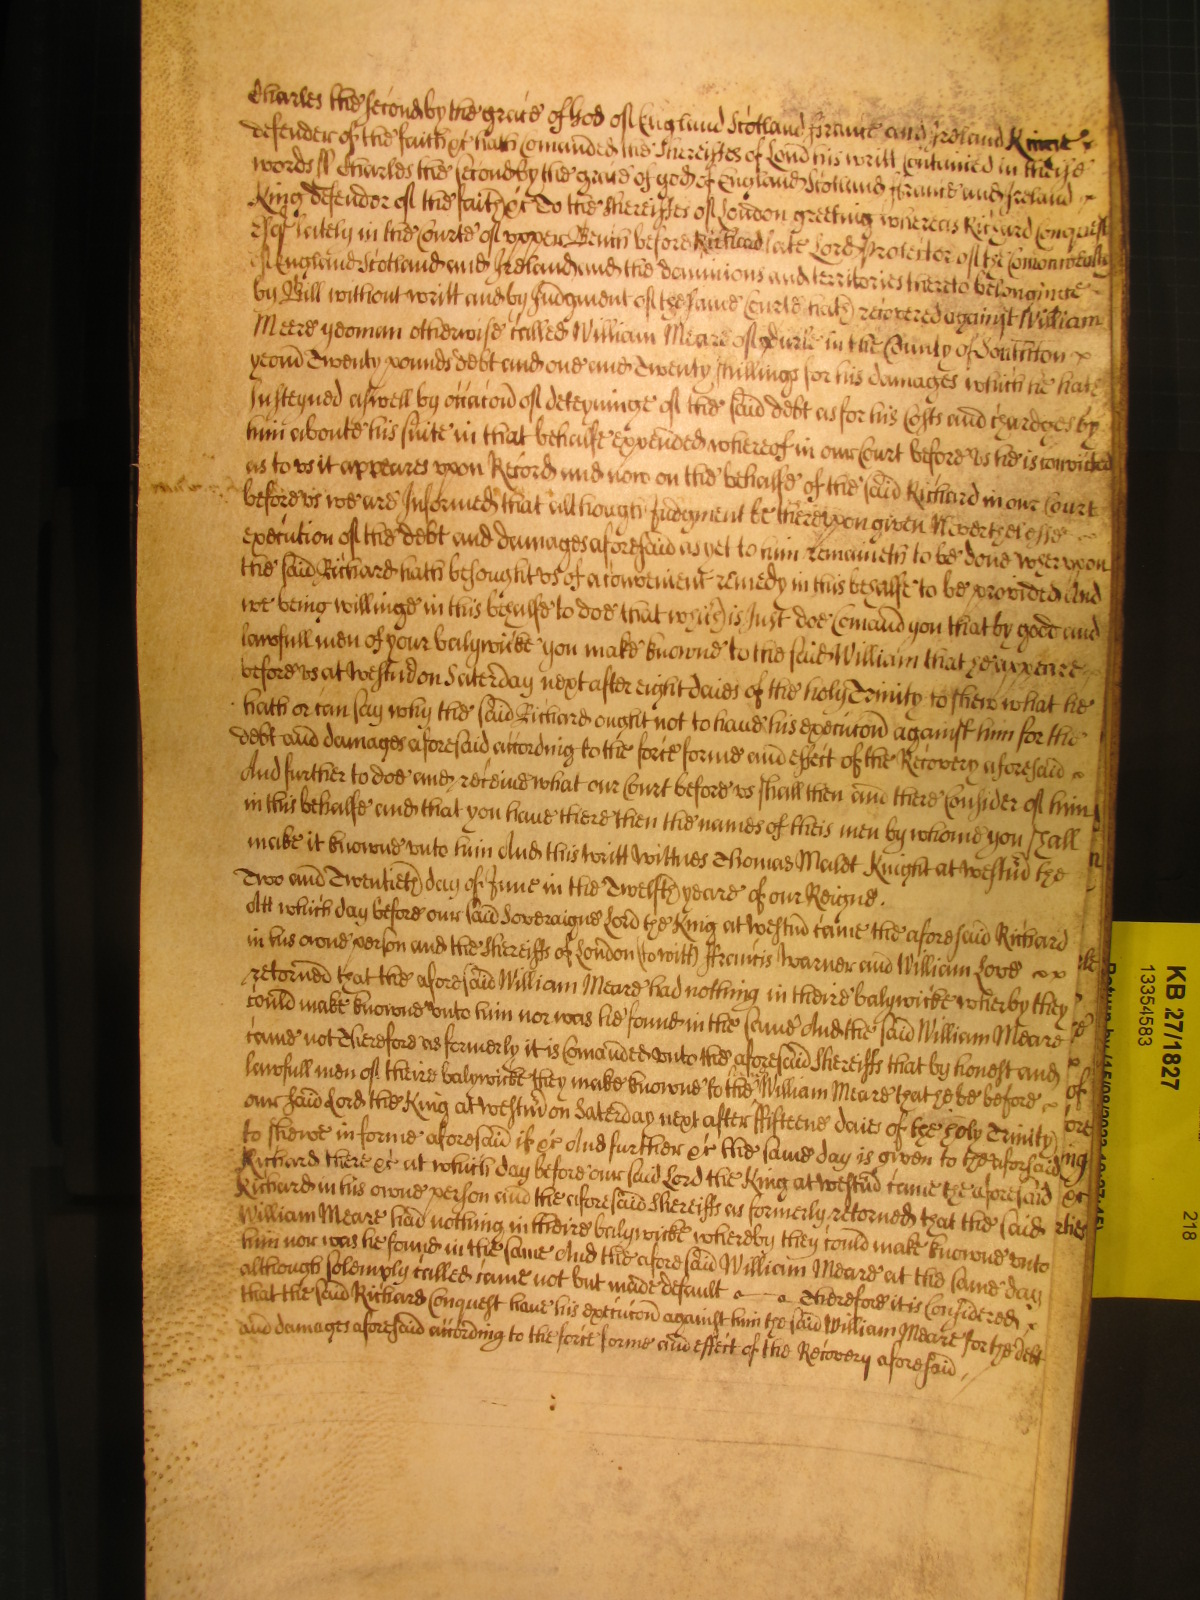 Charles the second by the grace of God of England Scotland France and Ireland Kinge
defender of the faith &c hath Comanded the Shereiffes of Lond his writt Contained in theise
words ss Charles the second by the grace of god of England Scotland France and Ireland
King defendor of the faith &c To the Shereiffes of London greeting whereas Richard Conquest
Esqr lately in the Courte of vpper Bench before Richard late Lord Protector of the Comonwealth
of England Scotland and Ireland and the dominions and territories thereto belonginge
by Bill without writt and by Judgment of the same Courte hath recovered against William
Meere yeoman otherwise called William Meare of in the County of Southton
yeom Twenty pounds debt and one and Twenty shillings for his damages which he hath
susteyned aswell by occacon of deteyninge of the said debt as for his Costs and chardges by
him aboute his suite in that behalfe expended whereof in our Court before vs he is convicted
as to vs it appeares vpon Record and now on the behalfe of the said Richard in our Court
before vs we are Informed that although Judgment be therevpon given Neverthelesse
execution of the debt and damages aforesaid as yet to him remaineth to be done wherevpon
the said Richard hath besought vs of a convenient remedy in this behalfe to be provided And
we being willinge in this behalfe to doe that which is Just doe Comand you that by good and
lawfull men of your balywicke you make knowne to the said William that he appeare
before vs at Westm on Saterday next after eight daies of the holy Trinity to shew what he
hath or can say why the said Richard ought not to haue his execucon against him for the
debt and damages aforesaid according to the force forme and effect of the Recovery aforesaid
And further to doe and receiue what our Court before vs shall then and there Consider of him
in this behalfe and that you haue there then the names of theis men by whome you shall
make it knowne vnto him And this writt Wittnes Thomas Malet Knight at westm the
Two and Twentieth day of June in the Twelfth yeare of our Reigne.
Att which day before our said Soveraigne Lord the King at westm came the aforesaid Richard
in his owne person and the Shereiffs of London (to witt) Francis Warner and William Love
retorned that the aforesaid William Meare had nothing in theire balywicke wherby they
could make knowne vnto him nor was he found in the same And the said William Meare
came not Therefore as formerly it is Comanded vnto the aforesaid Shereiffs that by honest and
lawfull men of theire balywicke they make knowne to the William Meare that he be before
our said Lord the King at westm on Saterday next after Fifteene daies of the holy Trinity
to shewe in forme aforesaid if &c And further &c the same day is given to the aforesaid
Richard there &c at which day before our said Lord the King at westm came the aforesaid
Richard in his owne person and the aforesaid Shereiffs as formerly retorned that the said
William Meare had nothing in theire balywicke whereby they could make knowne vnto
him nor was he found in the same And the aforesaid William Meare at the same day
although solemply called came not but made default Therefore it is Considered
that the said Richard Conquest haue his execucon against him the said William Meare for the debt
and damages aforesaid according to the force forme and effect of the Recovery aforesaid
KB 27/1827
13354583
218